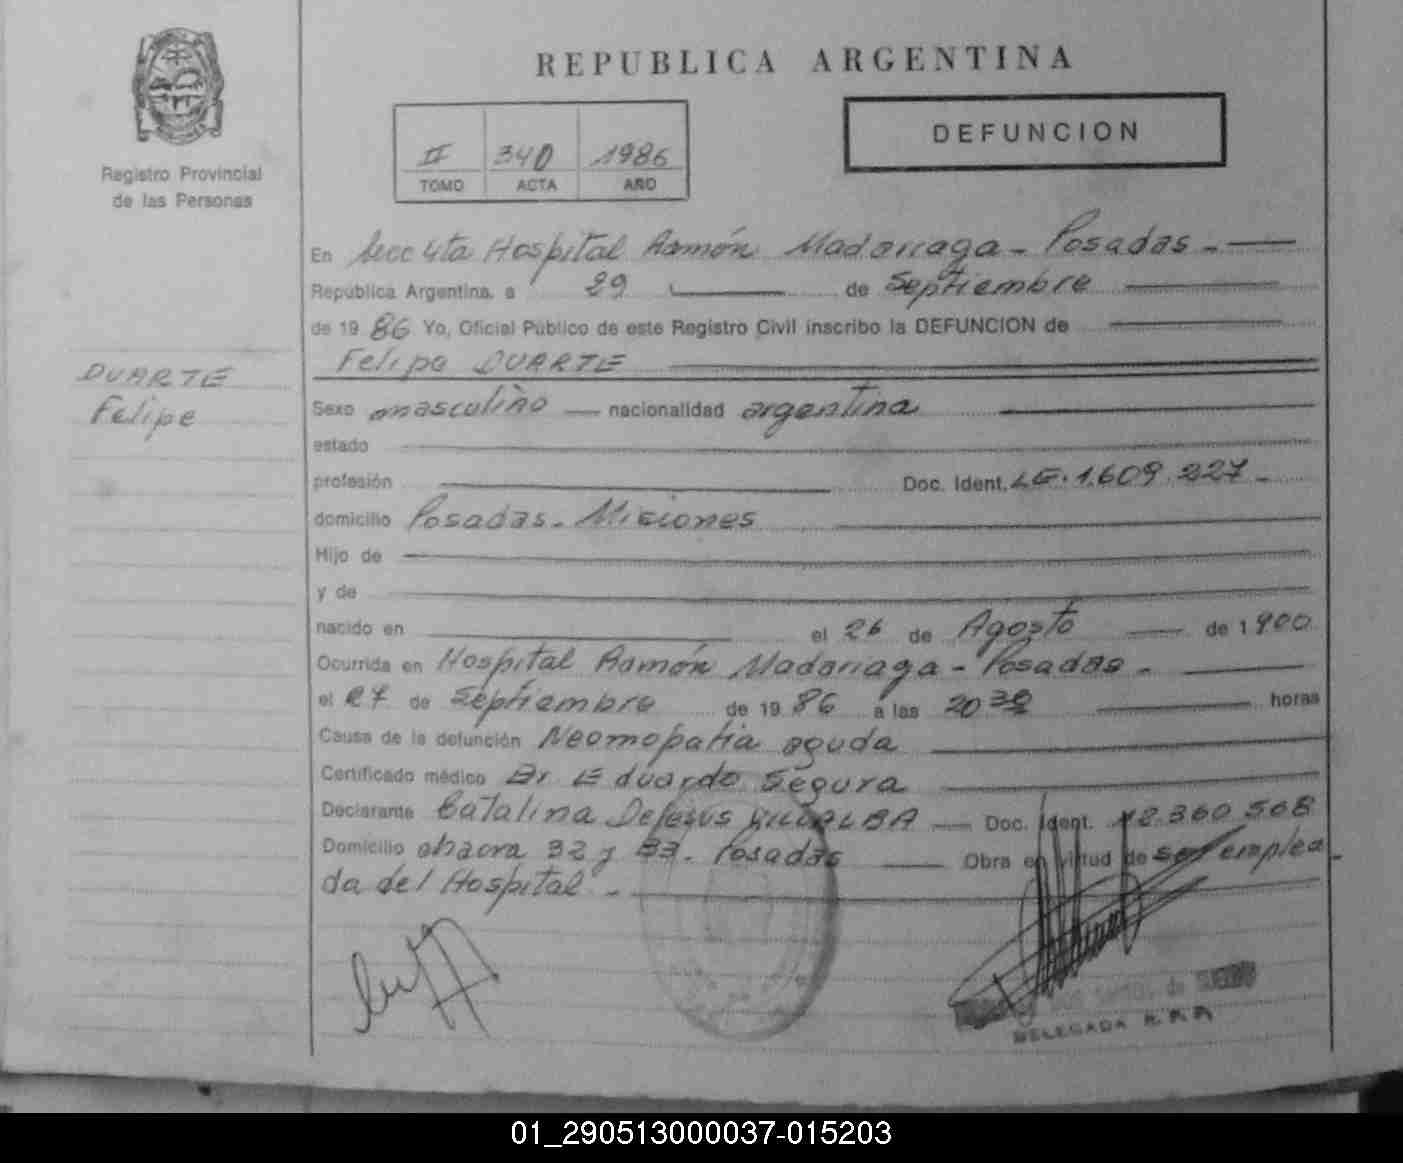 REPUBLICA ARGENTINA
DEFUNCION
II 340 1986
TOMO ACTA AÑO
Registro Provincial
de las Personas
En Secc 4ta Hospital Ramón Madariaga - Posadas -
República Argentina, a 29 de Septiembre
de 19 86 Yo, Oficial Público de este Registro Civil inscribo la DEFUNCION de
Felipe DUARTE
DUARTE
Felipe
Sexo masculino nacionalidad argentina
estado
profesión Doc. Ident. LE. 1.609.227 -
domicilio Posadas - Misiones
Hijo de
y de
nacido en el 26 de Agosto de 1900
Ocurrida en Hospital Ramón Madariaga - Posadas -
el 27 de Septiembre de 19 86 a las 20 30 horas
Causa de la defunción Neomopatia aguda
Certificado médico Dr Eduardo Segura
Declarante Catalina DeJesus VILLALBA Doc. Ident. 12.360.568
Domicilio chacra 32 y 33 - Posadas Obra en virtud de ser emplea-
da del Hospital -
DELEGADA R.P.P.
01_290513000037-015203